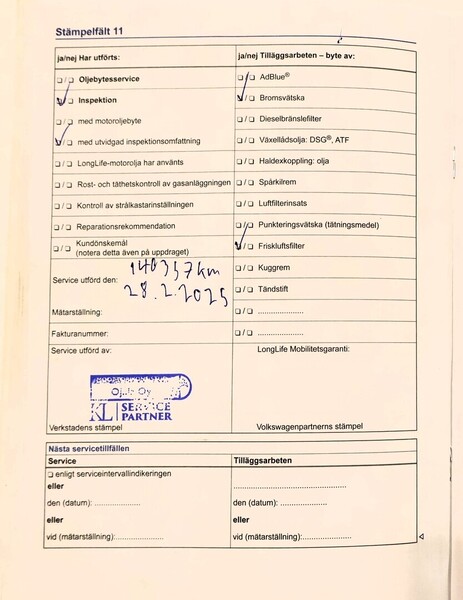 Stämpelfält 11
ja/nej Har utförts:
☐/☐ Oljebytesservice
☑/☐ Inspektion
☐/☐ med motoroljebyte
☑/☐ med utvidgad inspektionsomfattning
☐/☐ LongLife-motorolja har använts
☐/☐ Rost- och täthetskontroll av gasanläggningen
☐/☐ Kontroll av strålkastarinställningen
☐/☐ Reparationsrekommendation
☐/☐ Kundönskemål
(notera detta även på uppdraget)
140357 km
Service utförd den: 28.2.2025
Mätarställning:
Fakturanummer:
Service utförd av:
Oy
KL SERVICE
PARTNER
Verkstadens stämpel
ja/nej Tilläggsarbeten – byte av:
☐/☐ AdBlue®
☑/☐ Bromsvätska
☐/☐ Dieselbränslefilter
☐/☐ Växellådsolja: DSG®, ATF
☐/☐ Haldexkoppling: olja
☐/☐ Spårkilrem
☐/☐ Luftfilterinsats
☐/☐ Punkteringsvätska (tätningsmedel)
☑/☐ Friskluftsfilter
☐/☐ Kuggrem
☐/☐ Tändstift
☐/☐ ..................
☐/☐ ..................
LongLife Mobilitetsgaranti:
Volkswagenpartnerns stämpel
Nästa servicetillfällen
Service
☐ enligt serviceintervallindikeringen
eller
den (datum): ..................
eller
vid (mätarställning):..................
Tilläggsarbeten
............................................
den (datum): ..................
eller
vid (mätarställning):..................